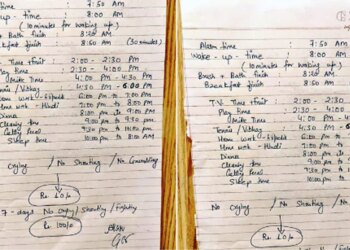 time : 7:50 AM
- time : 8:00 AM
(10 minutes for waking up)
+ Bath finish : 8:20 AM
finish : 8:50 AM (30 minutes)
Time + fruit : 2:00 - 2:30 PM
Play time : 2:30 - 4:00 PM
Milk Time : 4:00 PM - 4:30 PM
Tennis / : 4:30 PM - 6:00 PM
Home work - English : 6:00 PM to 7:00 PM
work - Hindi : 7:00 PM to 8:00 PM
Dinner : 8:00 PM to 9:00 PM
time : 9:00 PM to 9:30 PM
: 9:30 PM to 10:00 PM
Sleep time : 10:00 PM
Crying / No Shouting / No Grumbling
Rs 10/-
7 - days No cry / Shouting / fighting
Rs. 100/-
Alarm time : 7:50 AM
Wake - up - time : 8:00 AM
(10 minutes for waking up)
Brush + Bath finish : 8:20 AM
Breakfast finish : 8:50 AM
T.V. Time + fruit : 2:00 - 2:30
Play time : 2:30 - 4:00
Milk Time : 4:00 PM -
Tennis / : 4:30 PM -
Home work - English : 6:00 PM to
Home work - Hindi : 7:00 PM to
Dinner : 8:00 PM to
time : 9:00 PM to
: 9:30 PM to
Sleep time : 10:00 PM
No Crying / No Shouting / No
Rs 10/-